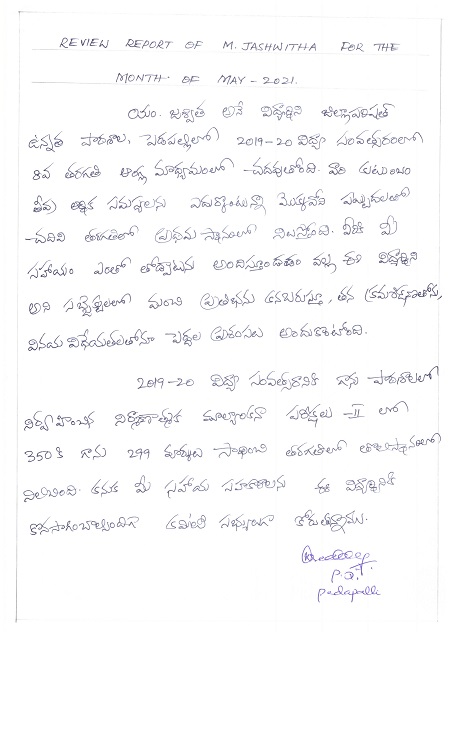 REVIEW REPORT OF M. JASHWITHA FOR THE
MONTH OF MAY - 2021.
యం. జశ్విత అనే విద్యార్థిని జిల్లాపరిషత్
ఉన్నత పాఠశాల, పెదపల్లిలో 2019-20 విద్యా సంవత్సరంలో
8వ తరగతి ఆంగ్ల మాధ్యమంలో చదువుతోంది. వారి కుటుంబం
తీవ్ర ఆర్థిక సమస్యలను ఎదుర్కొంటున్నా మొక్కవోని పట్టుదలతో
చదివి తరగతిలో ప్రథమ స్థానంలో నిలుస్తోంది. వీరికి మీ
సహాయం ఎంతో తోడ్పాటును అందిస్తూండటం వల్ల ఈ విద్యార్థిని
అని సబ్జెక్టులలో మంచి ప్రతిభను కనబరుస్తూ, తన క్రమశిక్షణతోను,
వినయ విధేయతలతోనూ పెద్దల ప్రశంసలు అందుకొంటోంది.
2019-20 విద్యా సంవత్సరానికి గాను పాఠశాలలో
నిర్వహించిన నిర్మాణాత్మక మూల్యాంకనా పరీక్షలు -II లో
350కి గాను 299 మార్కులు సాధించి తరగతిలో స్థానంలో
నిలిచింది. కనుక మీ సహాయ సహకారాలను ఈ విద్యార్థినికి
కొనసాగించాల్సిందిగా కమిటీ సభ్యులుగా కోరుతున్నాము.
P.G.T.
pedapalli